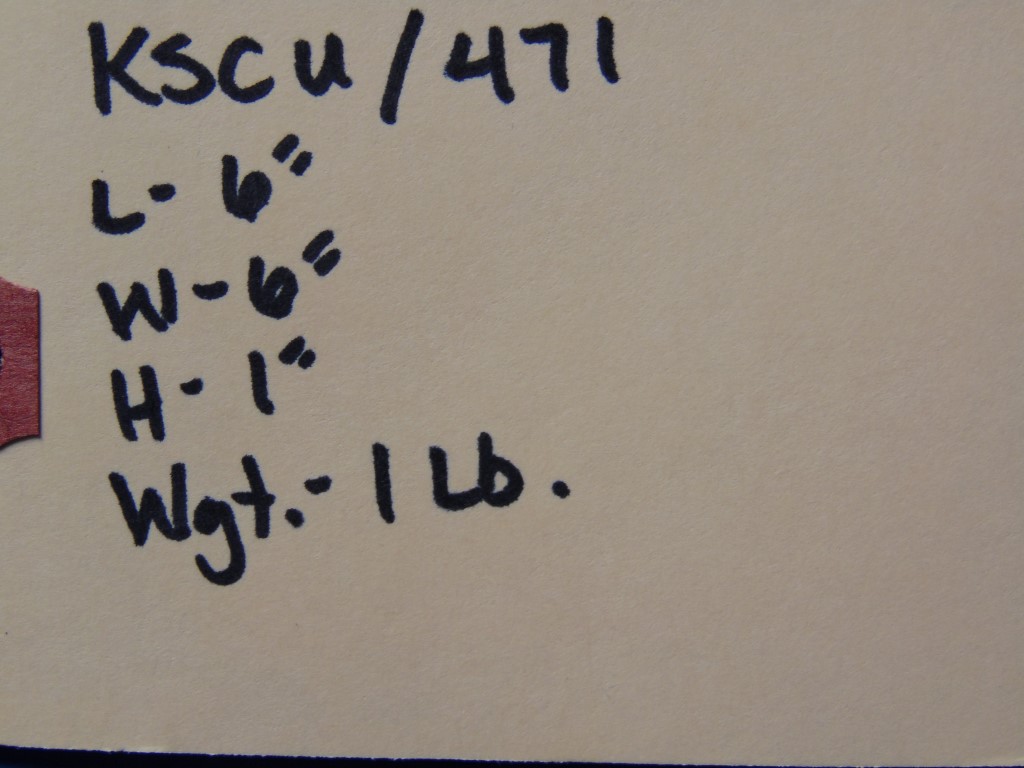 KSCU/471
L- 6"
W-6"
H- 1"
Wgt.- 1 Lb.